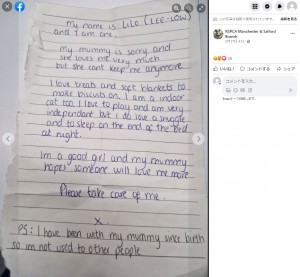 my name is Lilo (LEE-LOW)
and I am one.
my mummy is sorry and
she loves me very much
but she cant keep me anymore
I love treats and soft blankets to
make biscuits on. I am a indoor
cat too. I love to play and am very
independant but I do love a snuggle
and to sleep on the end of the bed
at night.
Im a good girl and my mummy
hopes someone will love me more.
Please take care of me.
x
PS: I have been with my mummy since birth
so im not used to other people
RSPCA Manchester & Salford
Branch
いいね！
コメントする
シェア
コメントを入力...